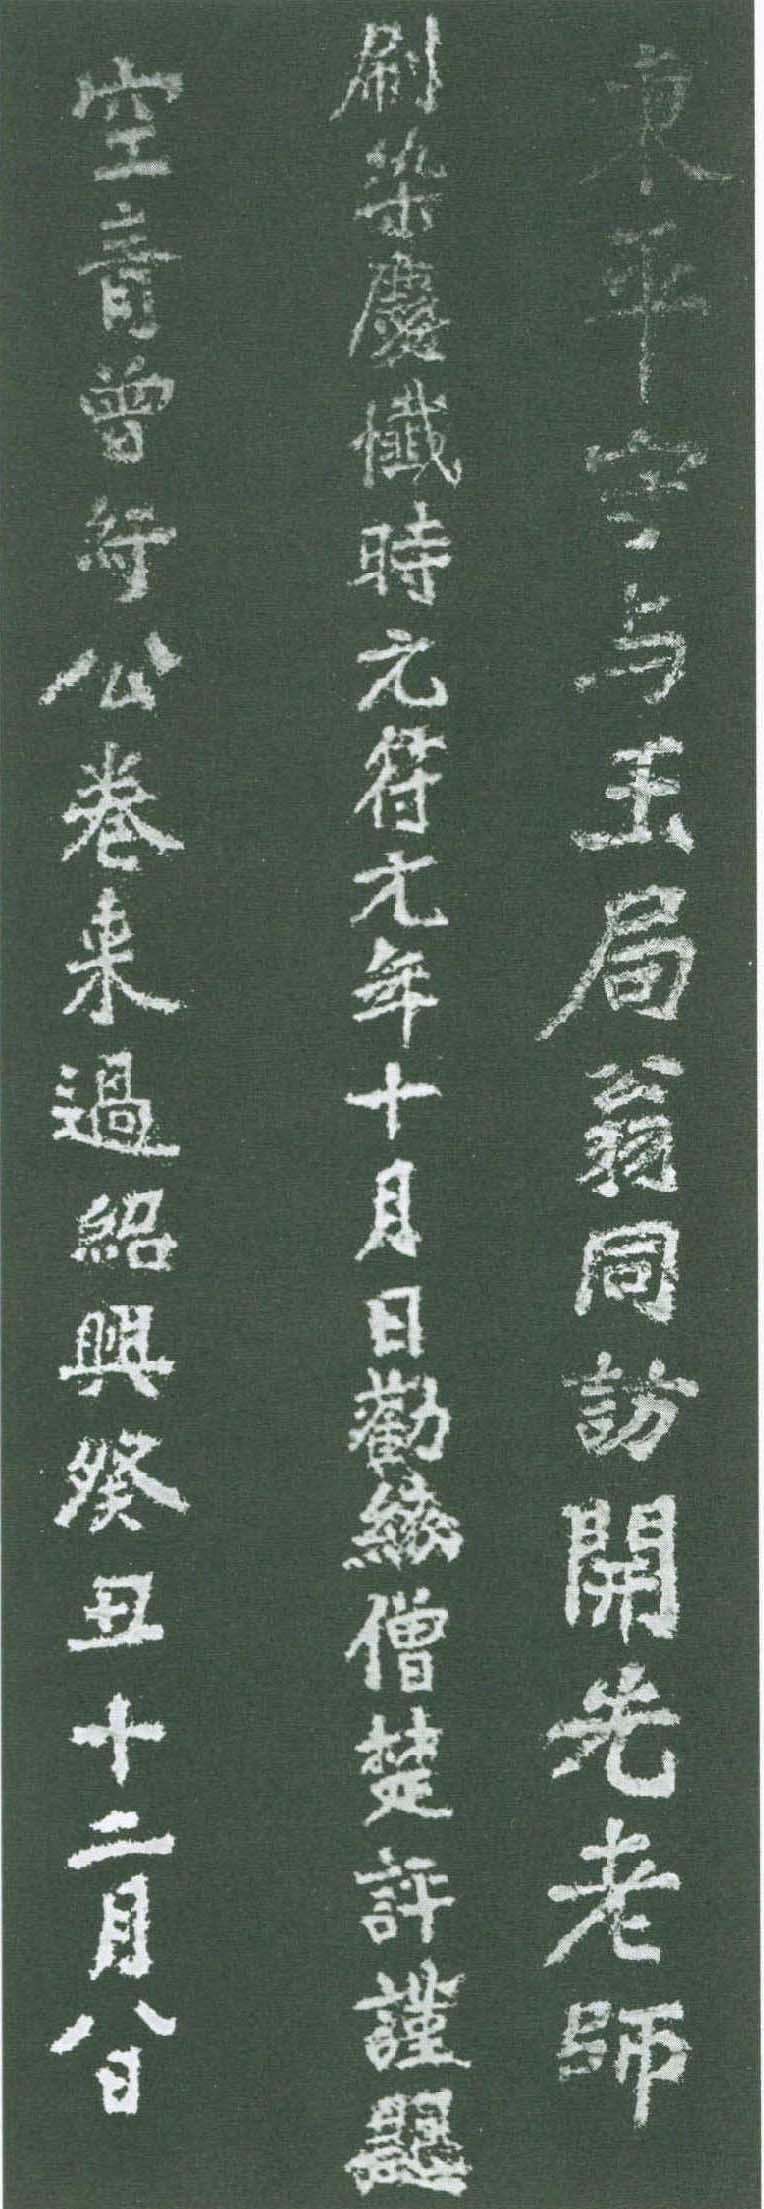 東平宇与玉局翁同訪開先老師
刷染慶懺時元符元年十月日勸緣僧楚評謹題
空青曾紆公卷来過紹興癸丑十二月八日